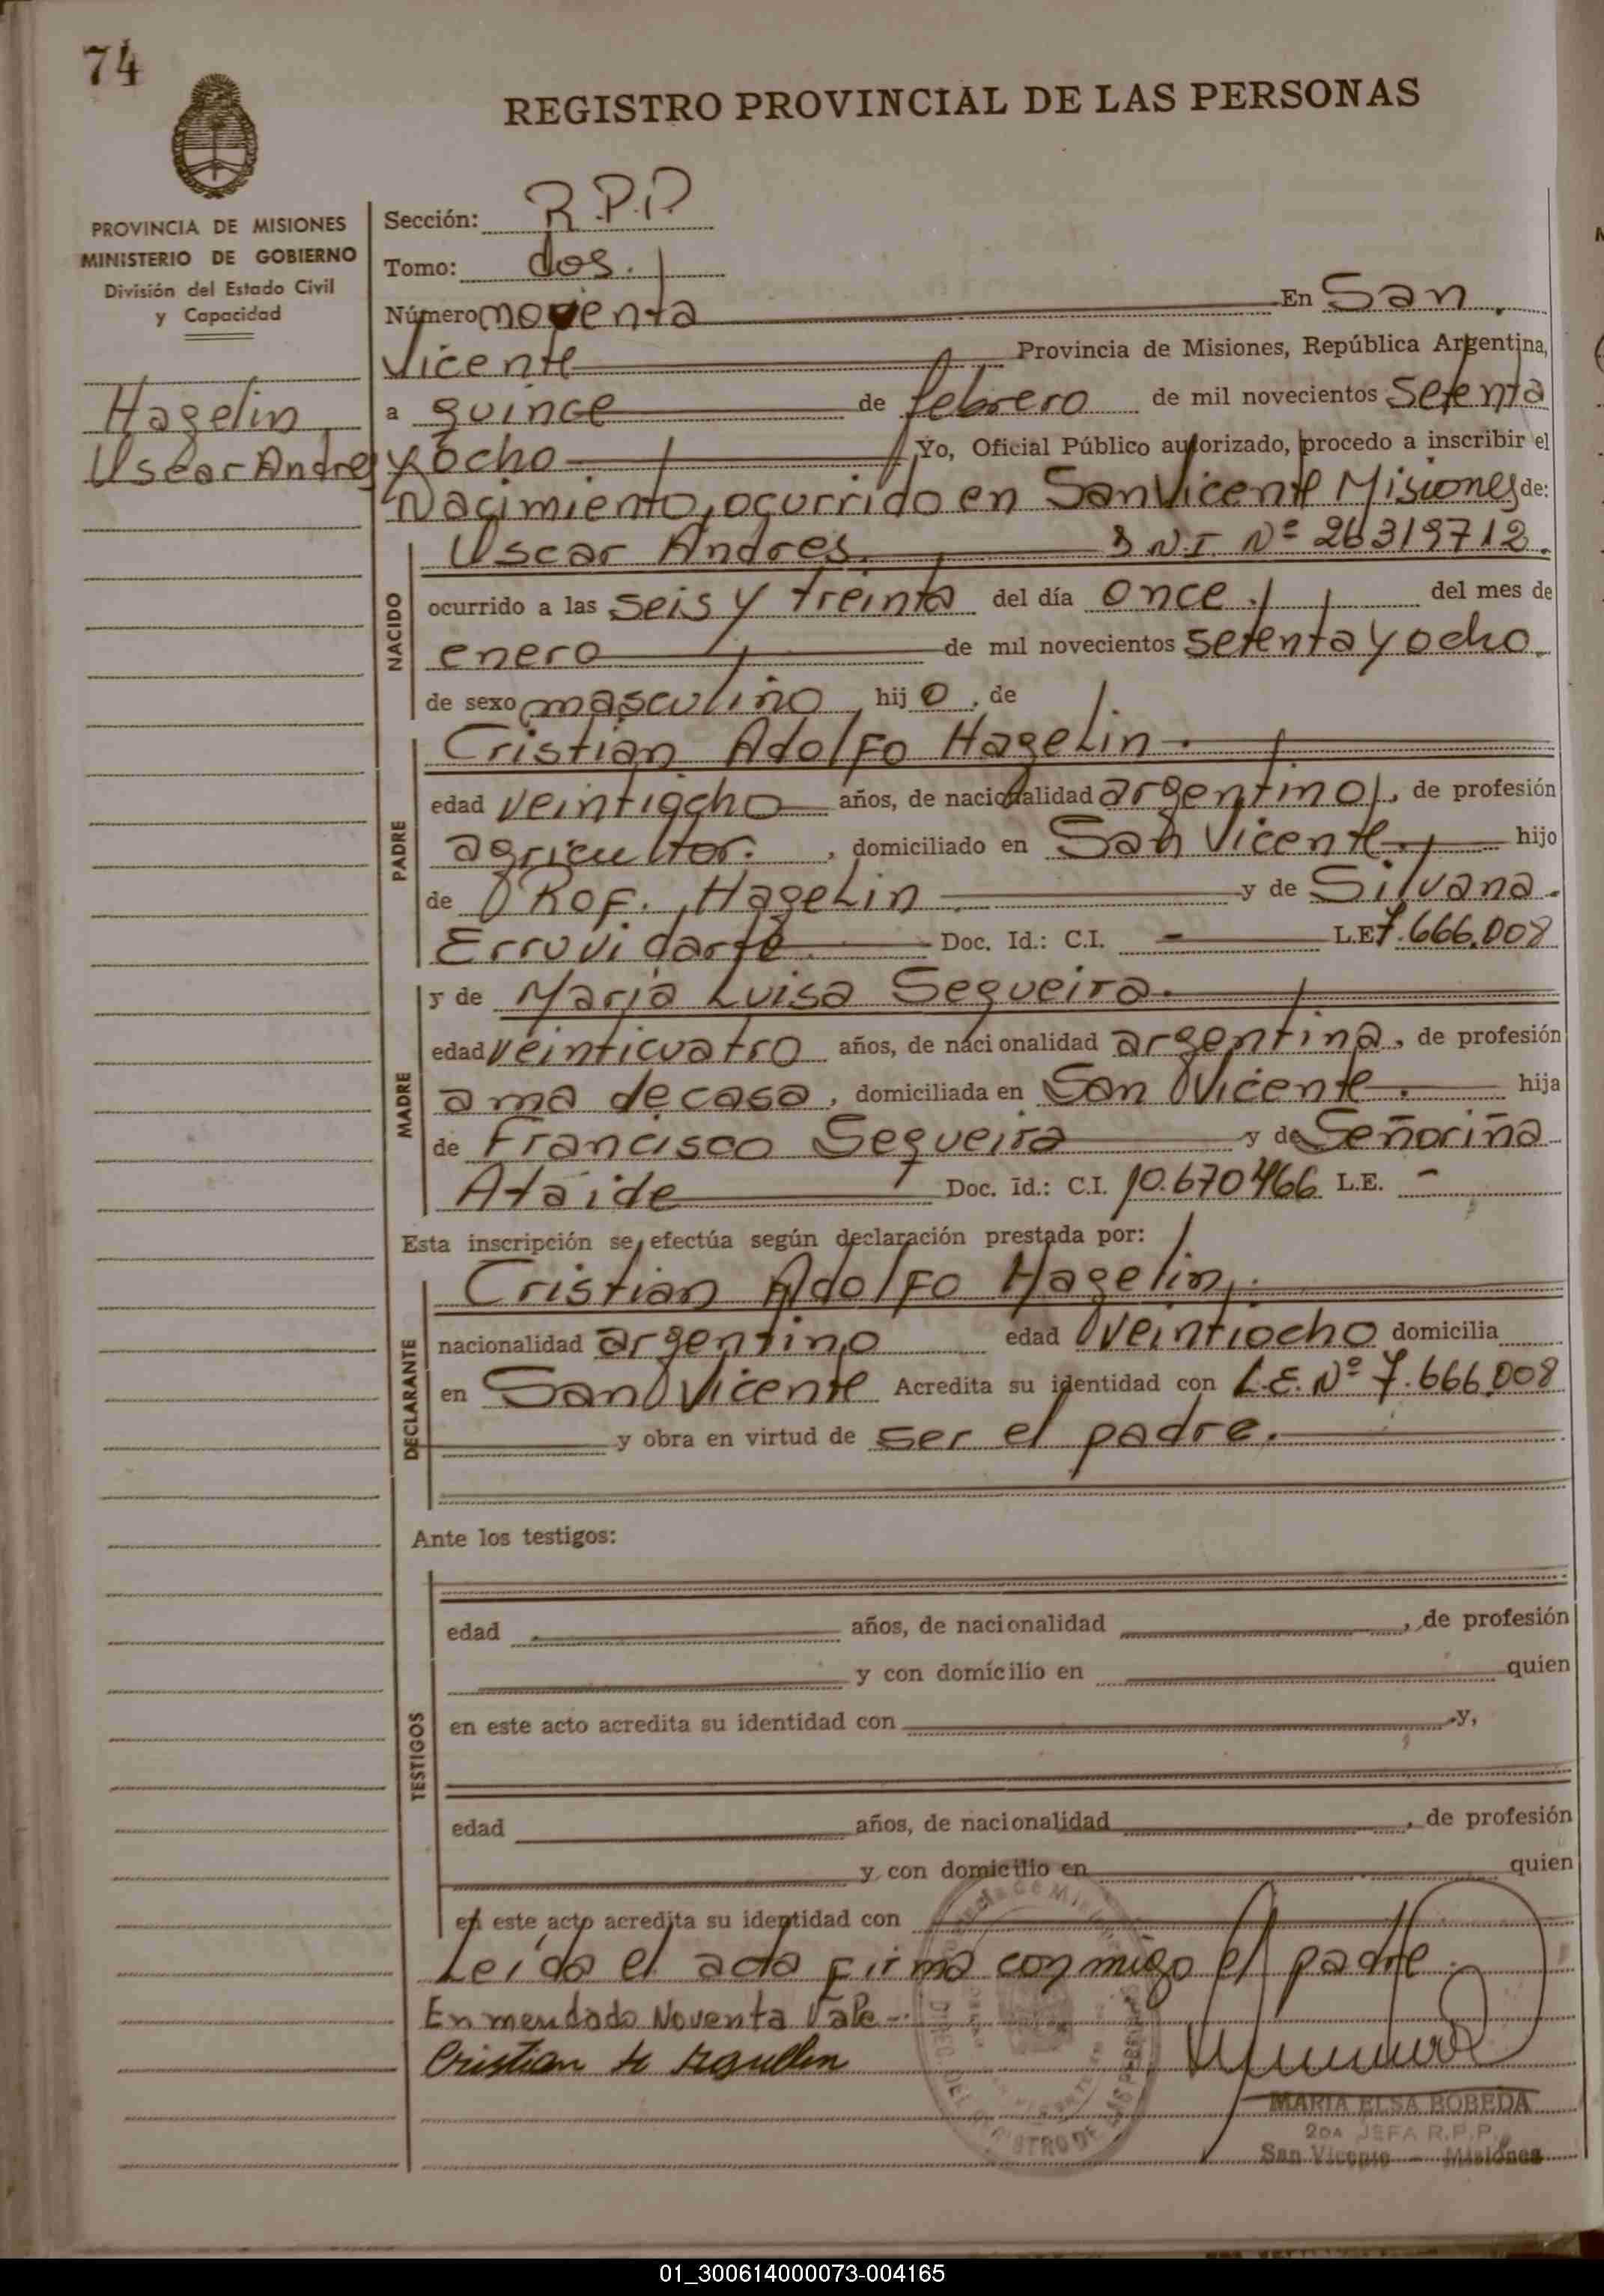 74
REGISTRO PROVINCIAL DE LAS PERSONAS
PROVINCIA DE MISIONES
MINISTERIO DE GOBIERNO
División del Estado Civil
y Capacidad
Hagelin
Uscar Andres
Sección: R.P.P.
Tomo: dos.
Número noventa En San
Vicente Provincia de Misiones, República Argentina,
a quince de febrero de mil novecientos setenta
y ocho Yo, Oficial Público autorizado, procedo a inscribir el
Nacimiento, ocurrido en San Vicente Misiones de:
NACIDO
Uscar Andres. D N.I. Nº 26319712.
ocurrido a las seis y treinta del día once. del mes de
enero de mil novecientos setenta y ocho
de sexo masculino, hijo, de
PADRE
Cristian Adolfo Hagelin.
edad veintiocho años, de nacionalidad argentino, de profesión
agricultor., domiciliado en San Vicente. hijo
de Rof. Hagelin y de Silvana
Erruvidarte Doc. Id.: C.I. - L.E 7.666.008
MADRE
y de Maria Luisa Sequeira.
edad veinticuatro años, de nacionalidad argentina, de profesión
ama de casa, domiciliada en San Vicente. hija
de Francisco Sequeira y de Señoriña
Ataide Doc. Id.: C.I. 10.670466 L.E. -
Esta inscripción se efectúa según declaración prestada por:
DECLARANTE
Cristian Adolfo Hagelin.
nacionalidad argentino edad veintiocho domicilia
en San Vicente Acredita su identidad con L.E. Nº 7.666.008
y obra en virtud de ser el padre.
Ante los testigos:
TESTIGOS
edad años, de nacionalidad , de profesión
y con domicilio en quien
en este acto acredita su identidad con y,
edad años, de nacionalidad , de profesión
y con domicilio en quien
en este acto acredita su identidad con
Leída el acta firma conmigo el padre.
Enmendado Noventa Vale-.
Cristian
MARIA ELSA BOBEDA
2DA JEFA R.P.P.
San Vicente - Misiones
01_300614000073-004165